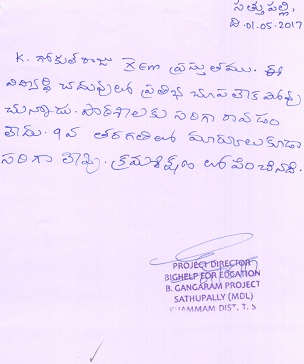 సత్తుపల్లి,
ది. 01.05.2017
K. గోకుల్ రాజు ప్రస్తుతము. ఈ
విద్యార్థి చదువులో ప్రతిభ చూపలేక పోవు
చున్నాడు. పాఠశాలకు సరిగా రావడం
లేదు. 9వ తరగతిలో మార్కులుకూడా
సరిగా లేవు. క్రమశిక్షణ లోపించినది.
PROJECT DIRECTOR
BIGHELP FOR EDCATION
B. GANGARAM PROJECT
SATHUPALLY (MDL)
KHAMMAM DIST, T. S